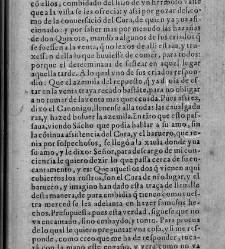 có ellos, combidado del sitio de vn hermoso valle
que a la vista se les ofrecia; y assi por gozar del, co-
mo de la conuersació del Cura, de quien ya yua afi-
cionado: y por saber mas por menudo las hazañas
de don Quixote, mandò a algunos de sus criados, q̃
se fuessen a la venta, q̃ no lexos de alli estaua, y tra-
xessen della lo que huuiesse de comer, para todos:
porque el determinaua de sestear en aquel lugar
aquella tarde. A lo qual vno de sus criados respon-
dio: Que el azemila del repuesto, q̃ ya deuia de es-
tar en la venta, traya recado bastãte, para no obligar
a no tomar de la venta mas que ceuada. Pues assi es,
dixo el Canonigo, lleuense alla todas las caualgadu-
ras, y hazed boluer la azemila. En tãto que esto pas-
saua, viendo Sãcho que podia hablar a su amo, sin
la cõtinua assistencia del Cura, y el barbero, que te-
nia por sospechosos, se llegò a la xaula donde yua
su amo, y le dixo: Señor, para descargo de mi con-
ciencia le quiero dezir lo que passa cerca de su en-
cantamento, y es: Que aquestos dos q̃ vienen aqui
cubiertos los rostros, son el Cura de nr̃o lugar, y el
barbero, y imagino han dado esta traça de lleualle
desta manera, de pura embidia q̃ tienen como vues-
tra merced se les adelanta en hazer famosos he-
chos. Presupuesta pues esta verdad, siguese que no
va encantado, sino embaydo, y tonto. Para prueua
de lo qual le quiero preguntar vna cosa, y si me res-
ponde, como creo que me ha de responder, toca-